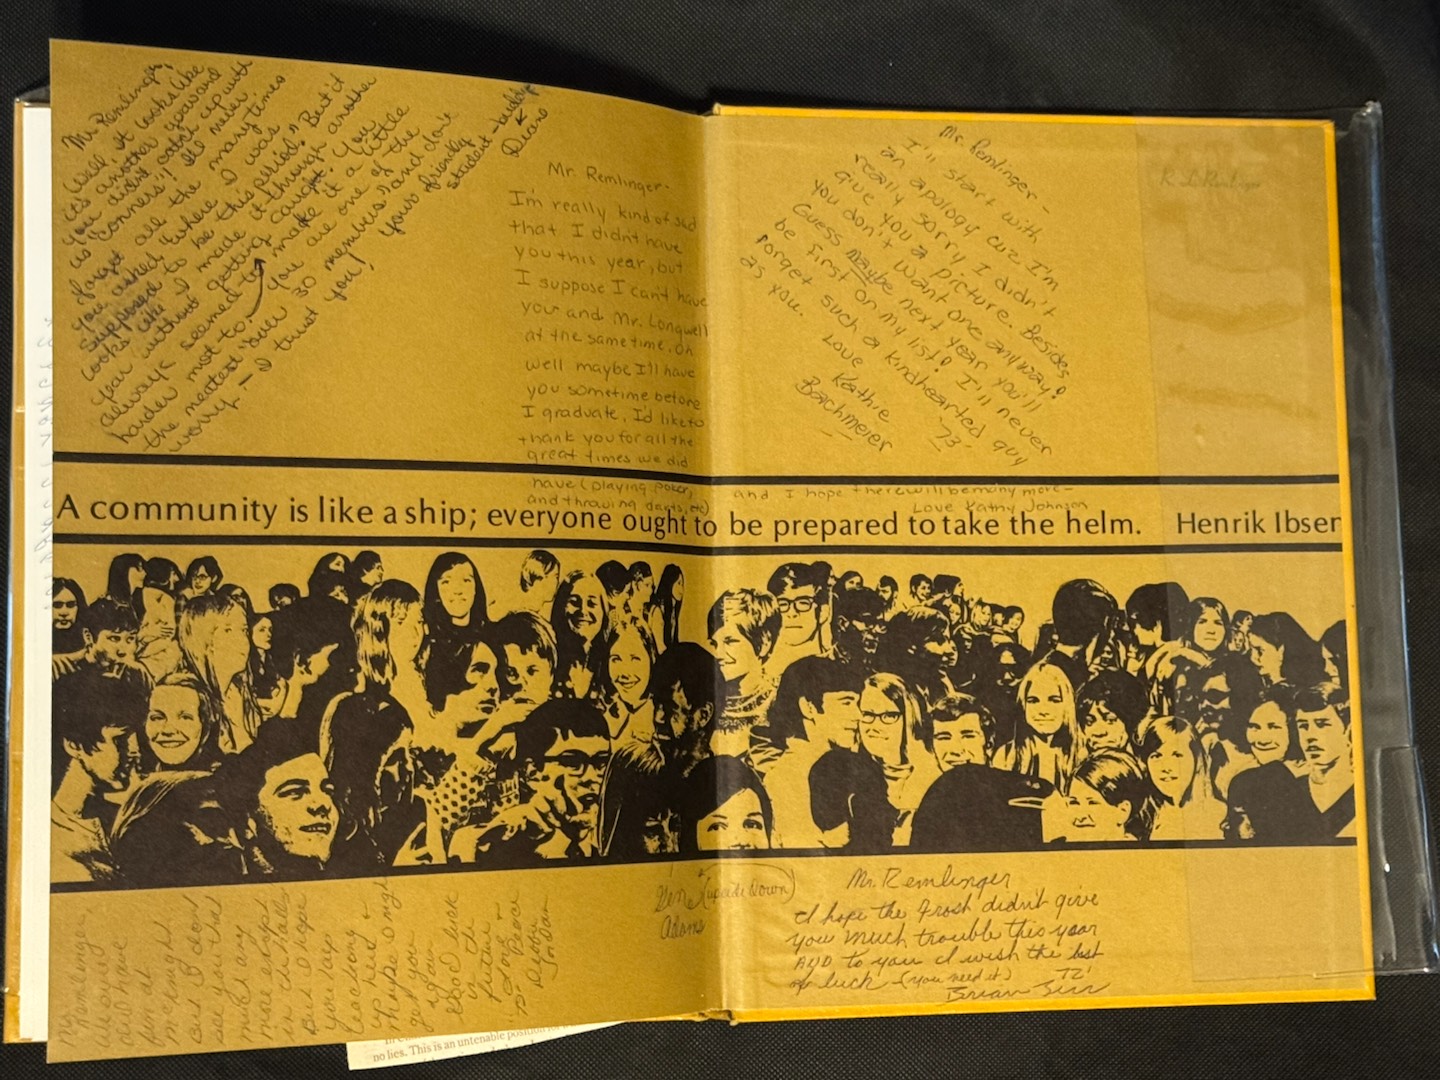 Mr. Remlinger,
Well it looks like
it's another year and
you didn't catch up with
us "conners"! I'll never
forget all the many times
you asked "where I was
supposed to be this period." But it
looks like I made it through another
year without getting caught. You
always seemed to make it a little
harder not to. You are one of the
the neatest "over 30" members and don't
worry — I trust you!
Your friendly
student-buddy
Diane
Mr. Remlinger-
I'm really kind of sad
that I didn't have
you this year, but
I suppose I can't have
you and Mr. Longwell
at the same time. Oh
well maybe I'll have
you sometime before
I graduate. I'd like to
thank you for all the
great times we did
have (playing poker,
and throwing darts, etc)
and I hope there will be many more-
Love Kathy Johnson
Mr. Remlinger-
I'll start with
an apology cuz I'm
really sorry I didn't
give you a picture. Besides
you don't want one anyway!
Guess maybe next year you'll
be first on my list! I'll never
forget such a kindhearted guy
as you.
Love
Kathie
Bachmeier
'73
R L Remlinger
A community is like a ship; everyone ought to be prepared to take the helm. Henrik Ibsen
Mr.
Remlinger,
have
fun at
but I don't
see you that
much any
more except
in the halls
But I hope
you stay
teaching
up here &
maybe I might
get you
again
Good luck
in the
future
Love &
Peace
Debbie
Jordan
Gene (upside Down)
Adams
Mr. Remlinger
I hope the Frosh didn't give
you much trouble this year
AND to you I wish the best
of luck (you need it)
Brian
no lies. This is an untenable position